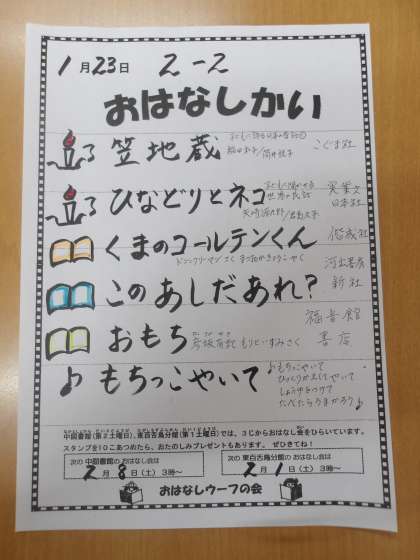 1月23日 2-2
おはなしかい
笠地蔵 稲田和子/筒井悦子 こぐま社
ひなどりとネコ 子どもに聞かせる世界の民話 矢崎源九郎 実業之日本社
くまのコールテンくん ドン=フリーマン さく まつおかきょうこ やく 偕成社
このあしだあれ? 河出書房新社
おもち 彦坂有紀 もりといずみ さく 福音館書店
♪ もちっこやいて ♪もちっこやいて
ひっくりかえしてやいて
しょうゆをつけて
たべたらうまかろう♪
中図書館(第2土曜日)、東百舌鳥分館(第1土曜日)では、3じからおはなし会をひらいています。
スタンプを10こあつめたら、おたのしみプレゼントもあります。 ぜひきてね!
次の 中図書館の おはなし会は
2月8日(土) 3時~
次の 東百舌鳥分館の おはなし会は
2月1日(土) 3時~
おはなしウーフの会